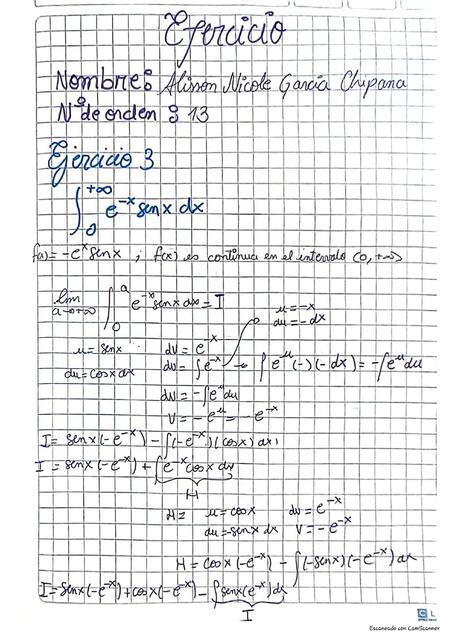 Ejercicio
Nombre: Alisson Nicole García Chipana
N° de orden : 13
Ejercicio 3
∫₀^{+∞} e^{-x} sen x dx
f(x) = -e^x sen x ; f(x) es continua en el intervalo (0, +∞)
lim a→+∞ ∫₀^a e^{-x} sen x dx = I
u = -x
du = -dx
u = sen x dv = e^{-x}
du = cos x dx dv = ∫e^{-x} → ∫e^u (-)(-dx) = -∫e^u du
dv = -∫e^u du
V = -e^u = -e^{-x}
I = sen x (-e^{-x}) - ∫(-e^{-x})(cos x) dx
I = sen x (-e^{-x}) + ∫e^{-x} cos x dx
H
H = u = cos x dv = e^{-x}
du = -sen x dx V = -e^{-x}
H = cos x (-e^{-x}) - ∫(-sen x)(-e^{-x}) dx
I = sen x (-e^{-x}) + cos x (-e^{-x}) - ∫sen x (e^{-x}) dx
I
CL
Escaneado con CamScanner